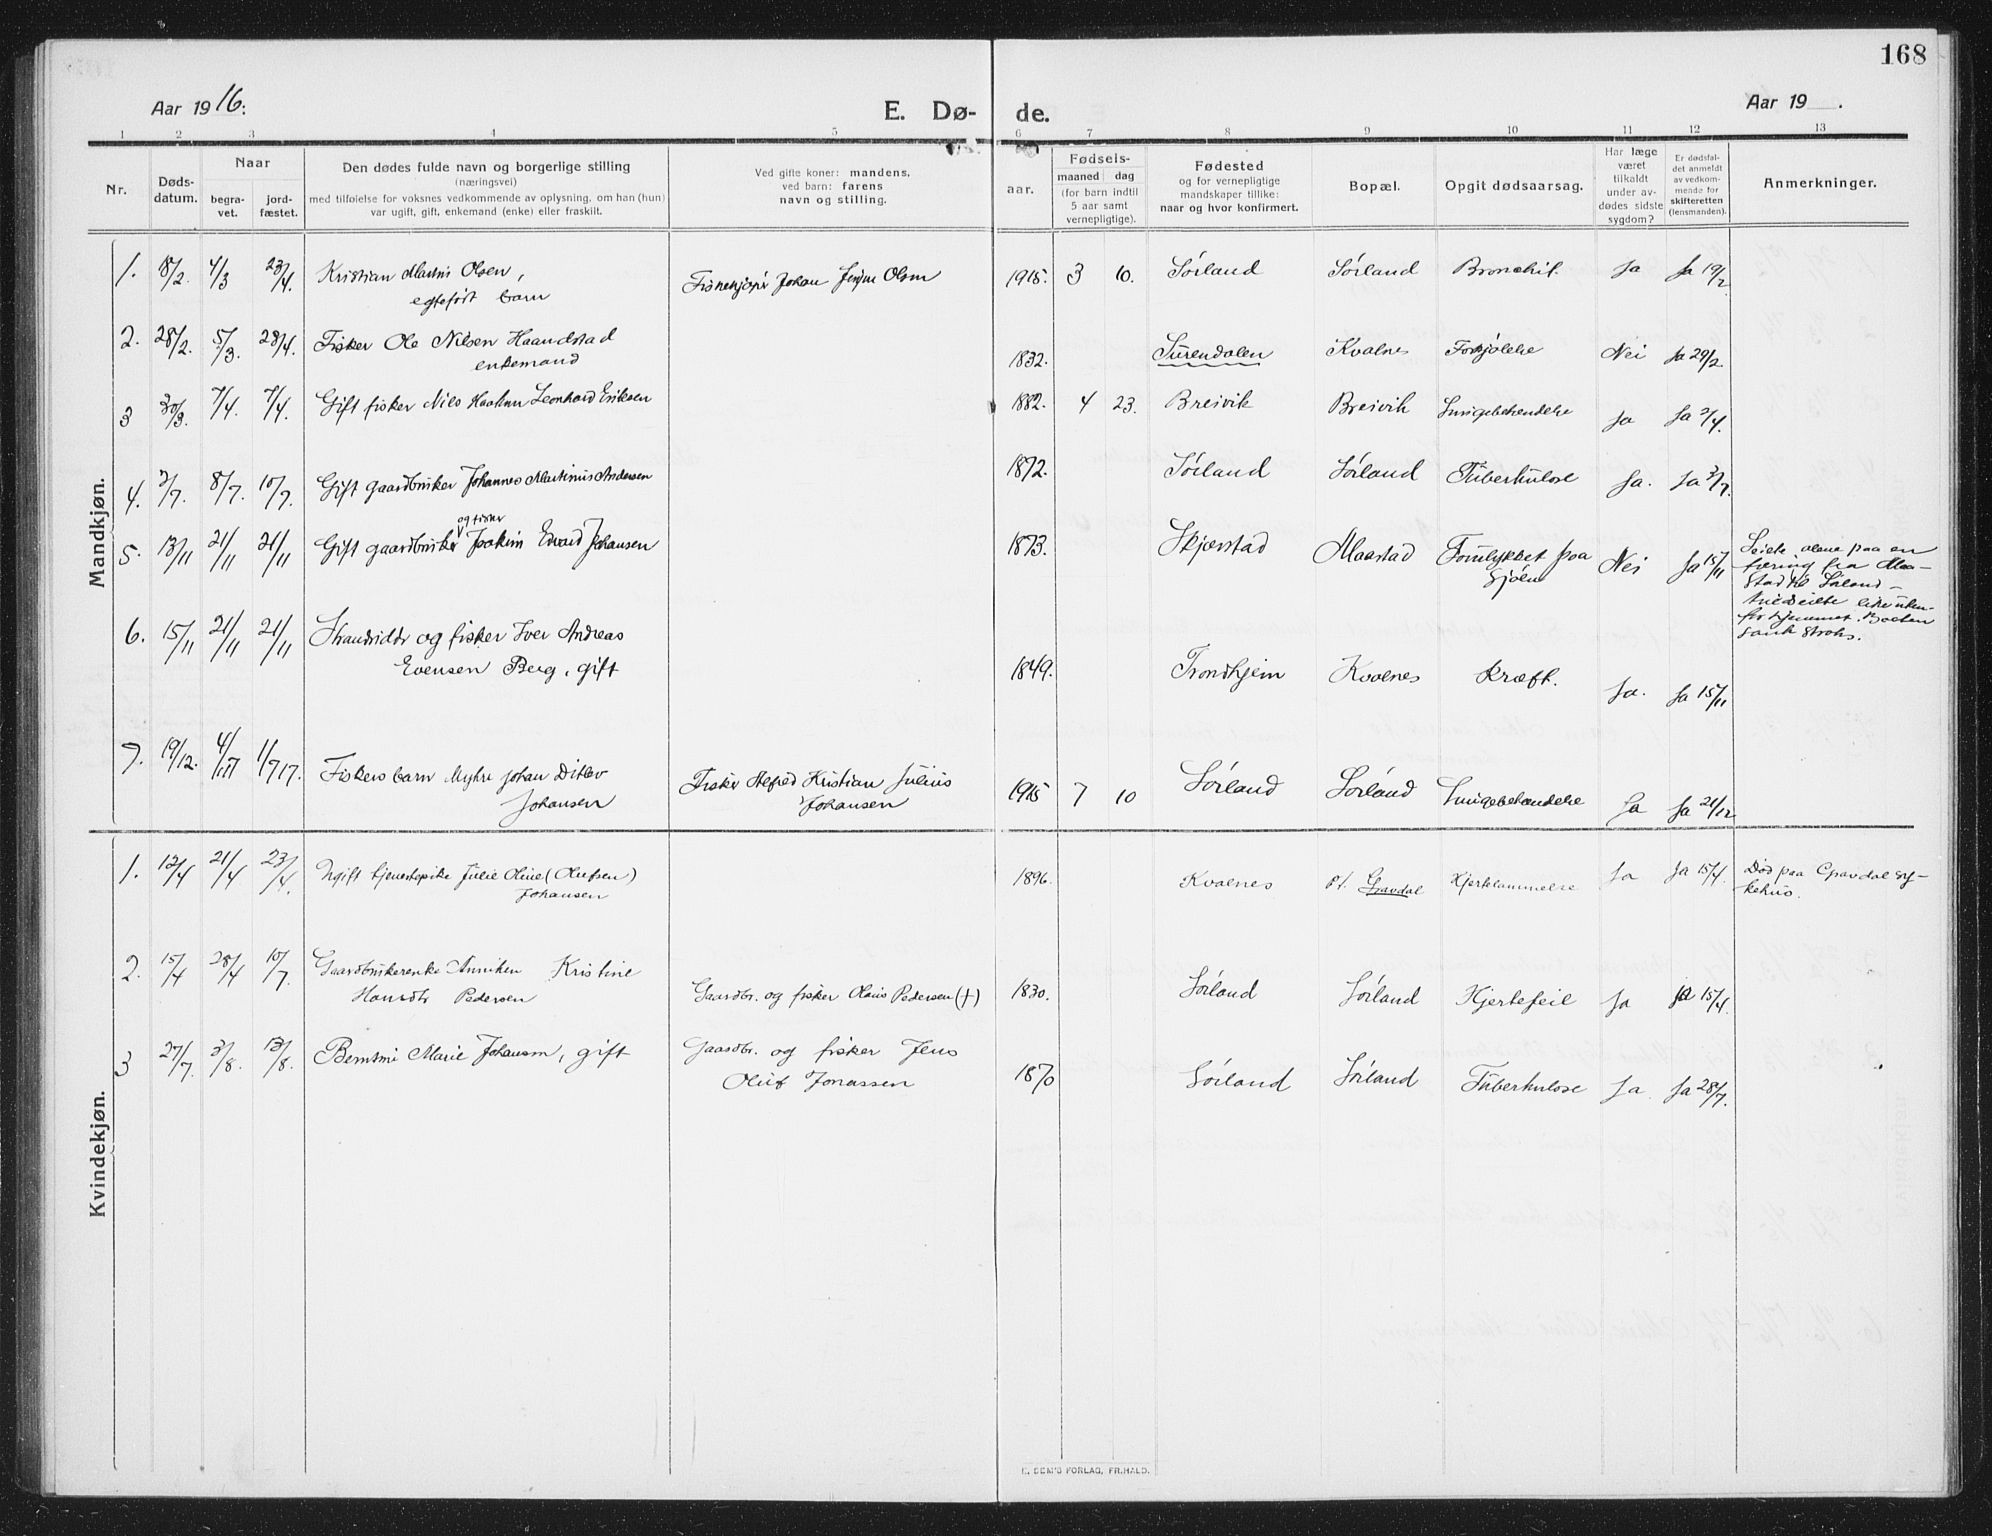 168
Aar 1916.
E. Dø- de.
Aar 19 .
1 2 3 4 5 6 7 8 9 10 11 12 13
Nr.
Døds-
datum.
Naar
begra-
vet.
jord-
fæstet.
Den dødes fulde navn og borgerlige stilling
(næringsvei)
med tilføielse for voksnes vedkommende av oplysning, om han (hun)
var ugift, gift, enkemand (enke) eller fraskilt.
Ved gifte koner: mandens,
ved barn: farens
navn og stilling.
aar.
Fødsels-
maaned dag
(for barn indtil
5 aar samt
vernepligtige).
Fødested
og for vernepligtige
mandskaper tillike:
naar og hvor konfirmert.
Bopæl.
Opgit dødsaarsag.
Har læge
været
tilkaldt
under av-
dødes sidste
sygdom?
Er dødsfal-
det anmeldt
av vedkom-
mende for
skifteretten
(lensmanden).
Anmerkninger.
Mandkjøn.
1. 18/2. 4/3 23/4. Kristian Martin Olsen, Johan Olsen 1915. 3 10. Sørland Sørland Bronchit. Ja Ja 19/2
egtefødt barn
2. 28/2. 5/3. 28/4. Fisker Ole Nilsen Haandstad 1832. Surendalen Kvalnes Forkjølelse Nei Ja 29/2.
enkemand
3 30/3. 7/4. 7/4. Gift fisker Nils Haakon Leonhard Eriksen 1882. 4 23. Breivik Breivik Lungebetændelse Ja Ja 2/4.
4. 2/7. 8/7. 10/7. Gift gaardbruker Johannes Martinus Andersen 1872. Sørland Sørland Tuberkulose Ja. Ja 3/7.
og fisker
5. 13/11 21/11 21/11 Gift gaardbruker Joakim Edvard Johansen 1873. Skjærstad Maastad Forulykket paa Nei Ja 15/11
sjøen
Seilte alene paa en
færing fra Maa-
stad til Sørland -
hvidseilte like uten-
for hjemmet. Baaten
sank straks.
6. 15/11 21/11 21/11 Strandsidder og fisker Iver Andreas
Evensen Berg, gift 1849. Trondhjem Kvalnes Kræft. Ja. Ja 15/11
7. 19/12. 1/7 17. Fiskers barn Myhre Johan Ditlev
Johansen
Fisker Alfred Kristian Julius
Johansen
1915 7 10 Sørland Sørland Lungebetændelse Ja Ja 21/12
Kvindekjøn.
1. 12/4 21/4 23/4. Ugift tjenestepike Julie Oline (Olufsen)
Johansen
1896. Kvalnes pt. Gravdal Hjerklammelse Ja Ja 15/4. Død paa Gravdal sy-
kehus.
2. 15/4 28/4 10/7. Gaardbrukerenke Anniken Kristine
Hansdtr Pedersen
Gaardbr. og fisker Olaus Pedersen (†) 1830. Sørland Sørland Hjertefeil Ja Ja 15/4.
3 27/7. 3/8. 13/8. Berntine Marie Johansen, gift
Gaardbr. og fisker Jens
Oluf Jonassen
1870 Sørland Sørland Tuberkulose Ja Ja 28/7.
E. SEM'S FORLAG, FR.HALD.